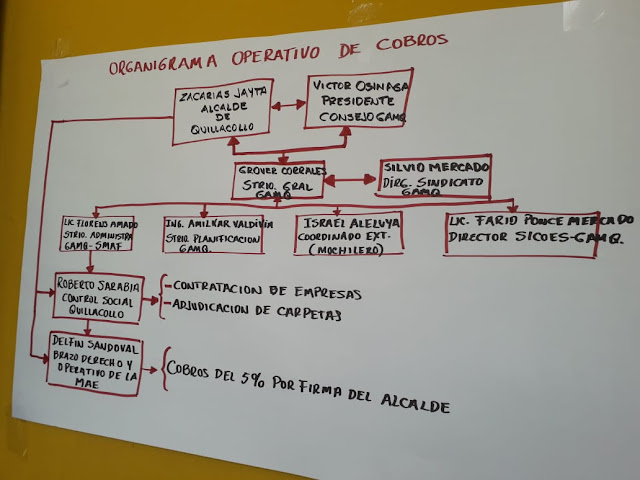 ORGANIGRAMA OPERATIVO DE COBROS
ZACARIAS JAYTA
ALCALDE
DE
QUILLACOLLO
VICTOR OSINAGA
PRESIDENTE
CONSEJO GAMQ
GROVER CORRALES
STRIO. GRAL
GAMQ
SILVIO MERCADO
DIRG. SINDICATO
GAMQ
LIC FLORENS AMADO
STRIO. ADMINISTRA
GAMQ-SMAF
ING. AMILKAR VALDIVIA
STRIO. PLANIFICACION
GAMQ.
ISRAEL ALELUYA
COORDINADO EXT.
(MOCHILERO)
LIC. FARID PONCE MERCADO
DIRECTOR SICOES-GAMQ.
ROBERTO SARABIA
CONTROL SOCIAL
QUILLACOLLO
- CONTRATACION DE EMPRESAS
- ADJUDICACION DE CARPETAS
DELFIN SANDOVAL
BRAZO DERECHO Y
OPERATIVO DE LA
MAE
COBROS DEL 5% POR FIRMA DEL ALCALDE